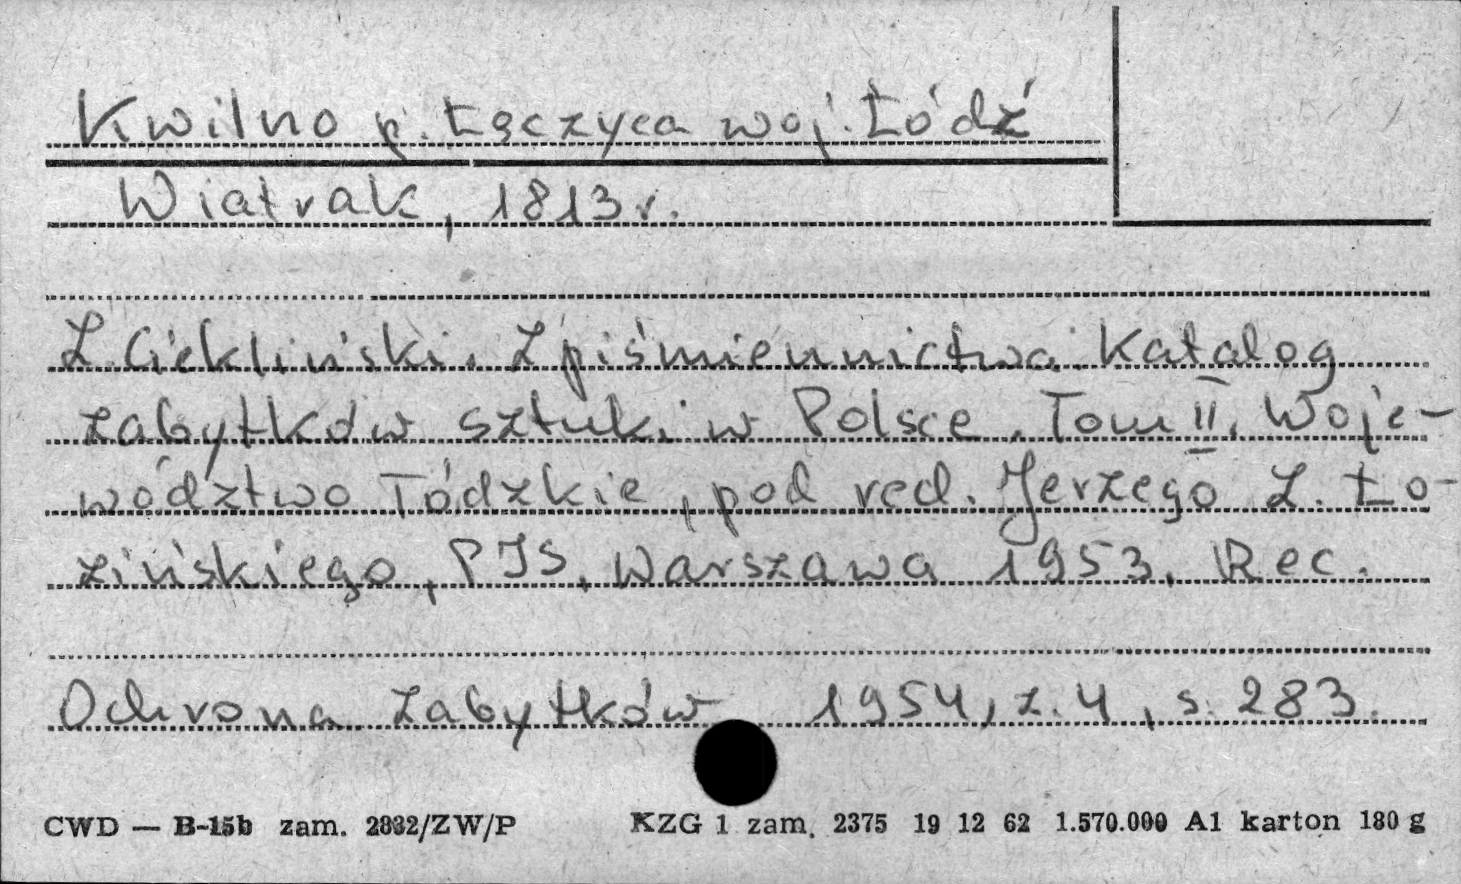 Kwilno p. Łęczyca woj. Łódź
Wiatrak, 1813 r.
Z. Ciekliński. Z piśmiennictwa. Katalog
zabytków sztuki w Polsce. Tom II. Woje-
wództwo Łódzkie, pod red. Jerzego Z. Ło-
zińskiego, PIS, Warszawa 1953. Rec.
Ochrona Zabytków 1954, z. 4, s. 283.
CWD — B-15b zam. 2832/ZW/P KZG 1 zam. 2375 19 12 62 1.570.000 A1 karton 180 g